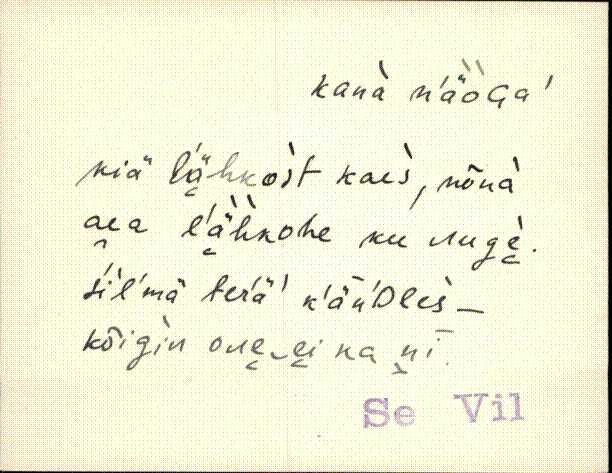 kanà ńäöGa'
kiä lähkost kaes, nõnà
aea lähkohe ku lugè.
śiĺmä terä' ḱäńDles –
kõigìn one_ei ka ni.
Se Vil